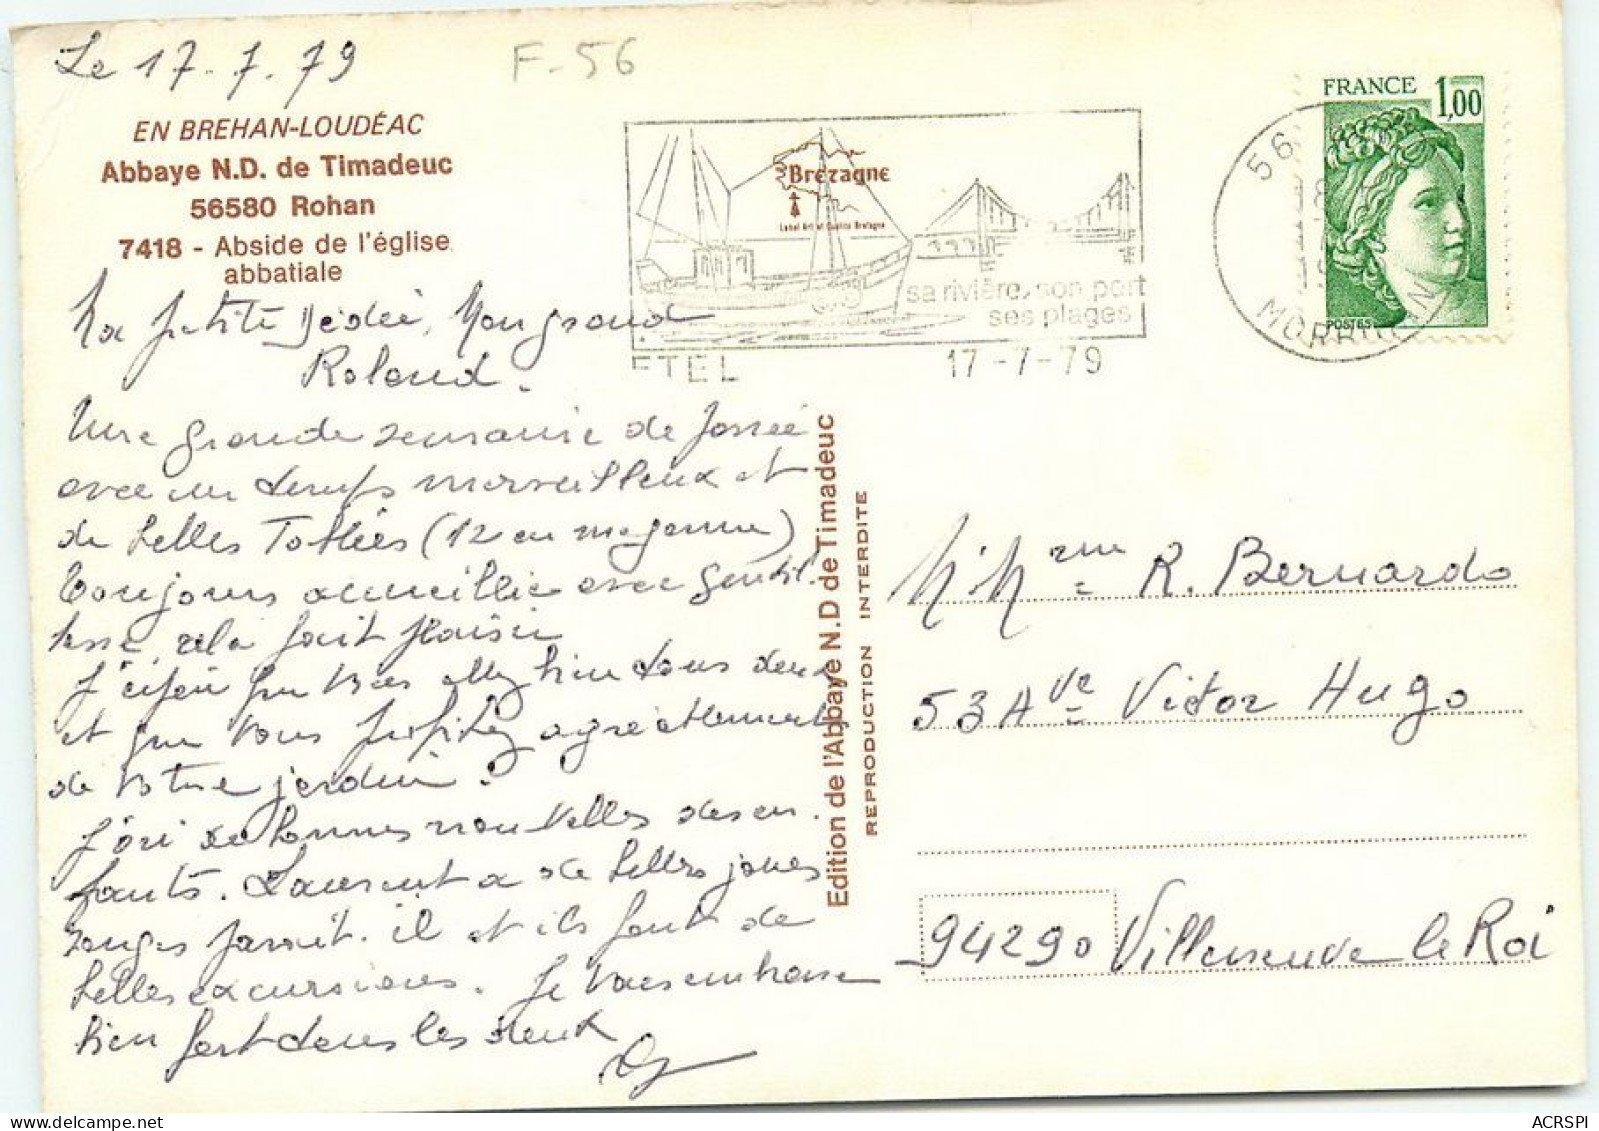 Le 17.7.79
F-56
EN BREHAN-LOUDÉAC
Abbaye N.D. de Timadeuc
56580 Rohan
7418 - Abside de l'église
abbatiale
Ma petite Dédée, Mon grand
Roland.
Une grande semaine de passée
avec un temps merveilleux et
de belles Tablées (12 en moyenne)
Toujours accueillie avec gentil.
lesse, cela fait plaisir
J'espère que vous allez bien tous deux
et que vous profitez agréablement
de votre jardin.
J'ai de bonnes nouvelles des en.
fants. Laurent a de belles joues
rouges parait.il et ils font de
belles excursions. Je vous embrasse
bien fort tous les deux
Edition de l'Abbaye N.D de Timadeuc
REPRODUCTION INTERDITE
Bretagne
Label Art et Qualité Bretagne
sa rivière, son port
ses plages
ETEL
17-7-79
56
MORBIHAN
FRANCE 1,00
POSTES
M Mme R. Bernardo
53 Ave Victor Hugo
94290 Villeneuve le Roi
ACRSPI